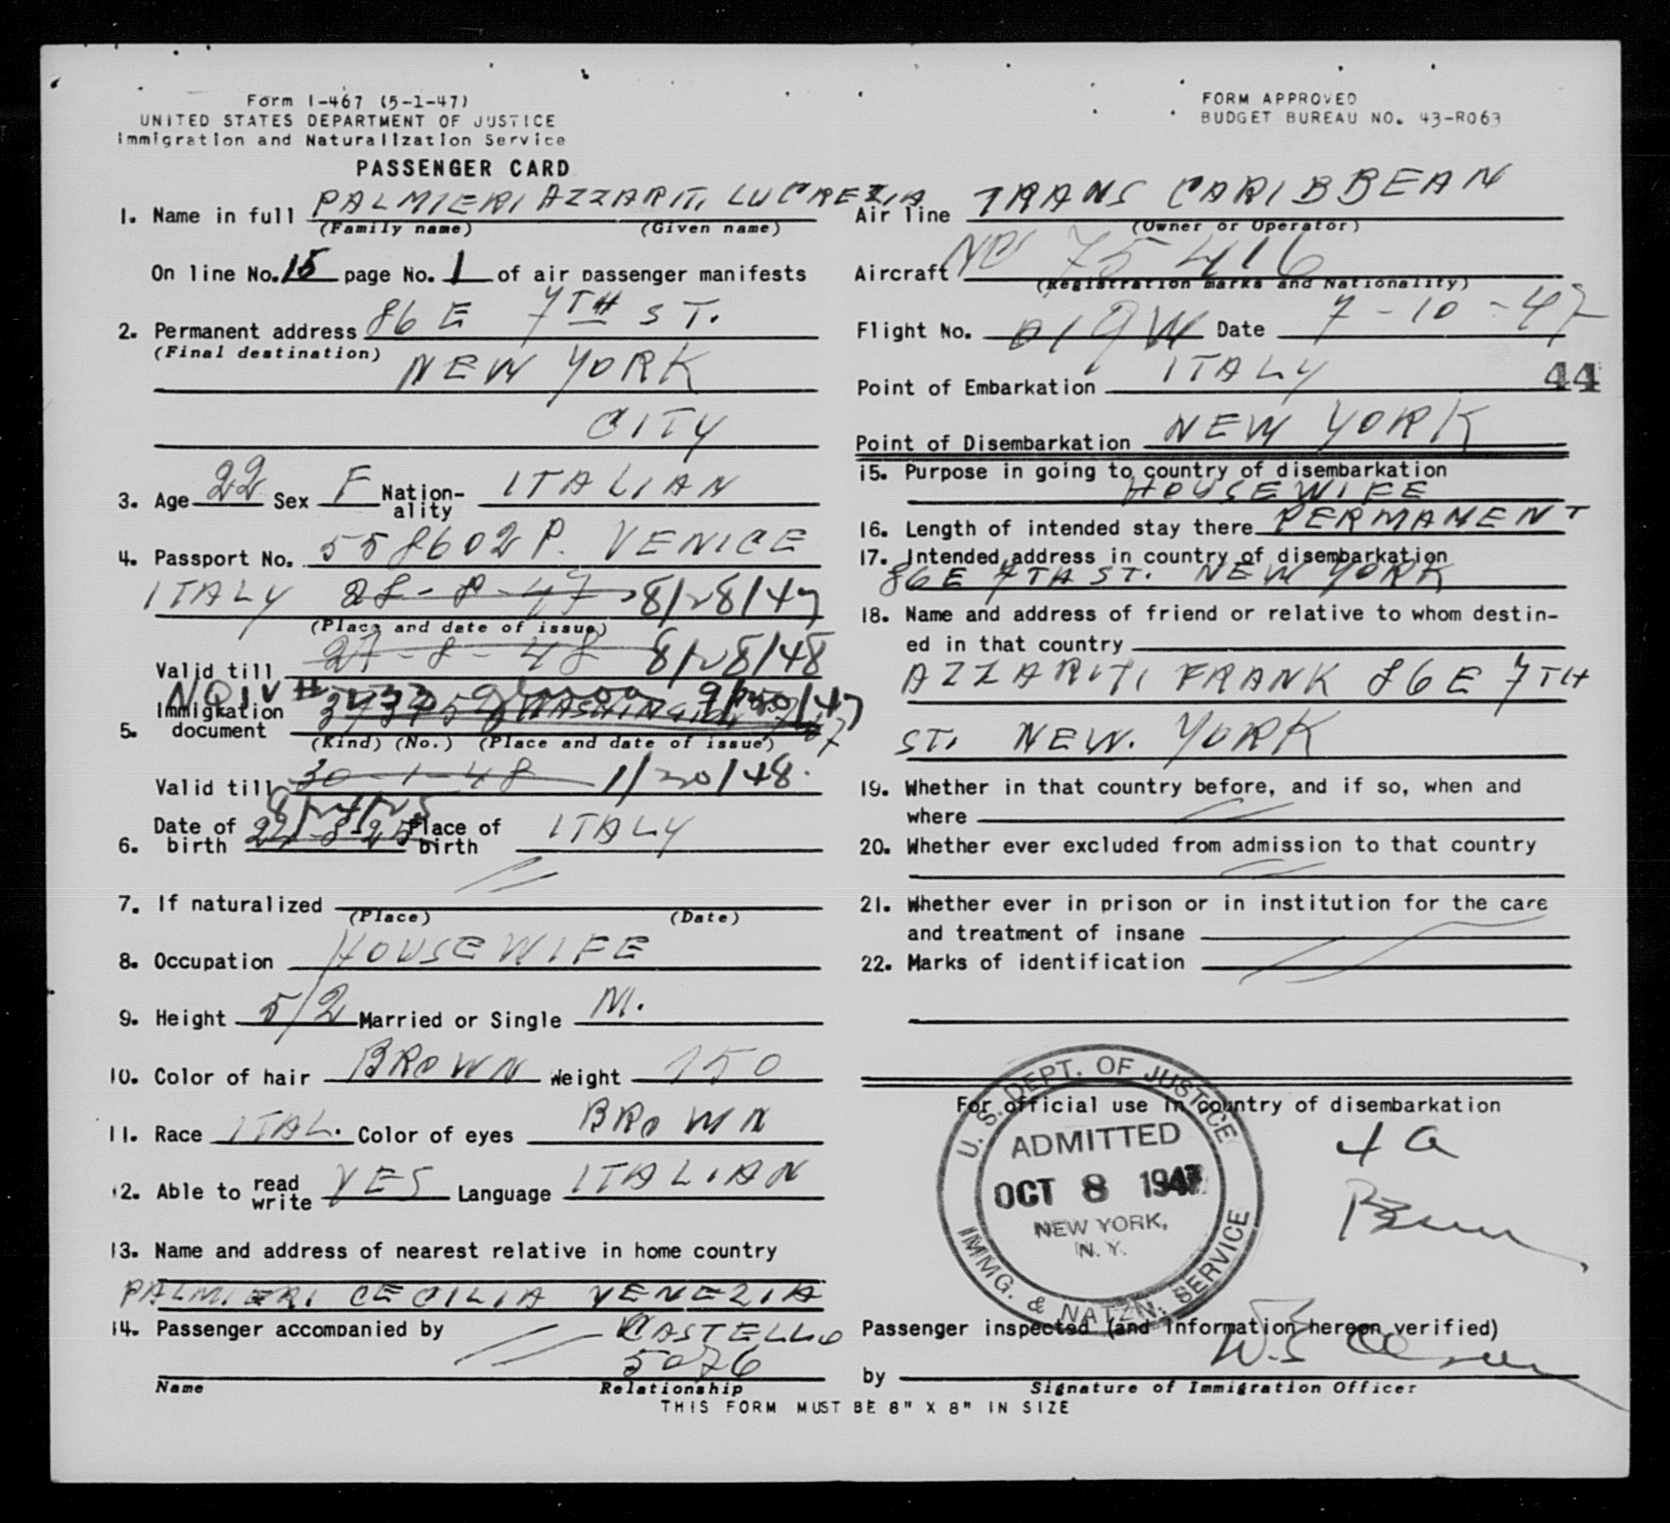 Form I-467 (5-1-47)
UNITED STATES DEPARTMENT OF JUSTICE
Immigration and Naturalization Service
PASSENGER CARD
FORM APPROVED
BUDGET BUREAU NO. 43-R063
1. Name in full PALMIERI AZZARITI LUCREZIA
(Family name) (Given name)
On line No. 15 page No. 1 of air passenger manifests
2. Permanent address 86 E 7TH ST.
(Final destination) NEW YORK
CITY
3. Age 22 Sex F Nation-ality ITALIAN
4. Passport No. 558602 P. VENICE
ITALY 28-8-47 8/28/47
(Place and date of issue)
Valid till 27-8-48 8/28/48
NQIV #
5. Immigration document 9/30/47
(Kind) (No.) (Place and date of issue)
Valid till 30-1-48 1/30/48.
8/24/25
6. Date of birth 24-8-25 Place of birth ITALY
7. If naturalized
(Place) (Date)
8. Occupation HOUSEWIFE
9. Height 5/2 Married or Single M.
10. Color of hair BROWN Weight 150
11. Race ITAL. Color of eyes BROWN
12. Able to read write YES Language ITALIAN
13. Name and address of nearest relative in home country
PALMIERI CECILIA VENEZIA
14. Passenger accompanied by CASTELLO
5076
Name Relationship
Air line TRANS CARIBBEAN
(Owner or Operator)
Aircraft NC 75416
(Registration marks and Nationality)
Flight No. 019W Date 7-10-47
Point of Embarkation ITALY
44
Point of Disembarkation NEW YORK
15. Purpose in going to country of disembarkation
HOUSEWIFE
16. Length of intended stay there PERMANENT
17. Intended address in country of disembarkation
86 E 7TH ST. NEW YORK
18. Name and address of friend or relative to whom destin-
ed in that country
AZZARITI FRANK 86 E 7TH
ST. NEW. YORK
19. Whether in that country before, and if so, when and
where
20. Whether ever excluded from admission to that country
21. Whether ever in prison or in institution for the care
and treatment of insane
22. Marks of identification
For official use in country of disembarkation
U. S. DEPT. OF JUSTICE
ADMITTED
OCT 8 1947
NEW YORK,
N. Y.
IMMG. & NATZN. SERVICE
4 a
Passenger inspected (and information hereon verified)
by
Signature of Immigration Officer
THIS FORM MUST BE 8" X 8" IN SIZE